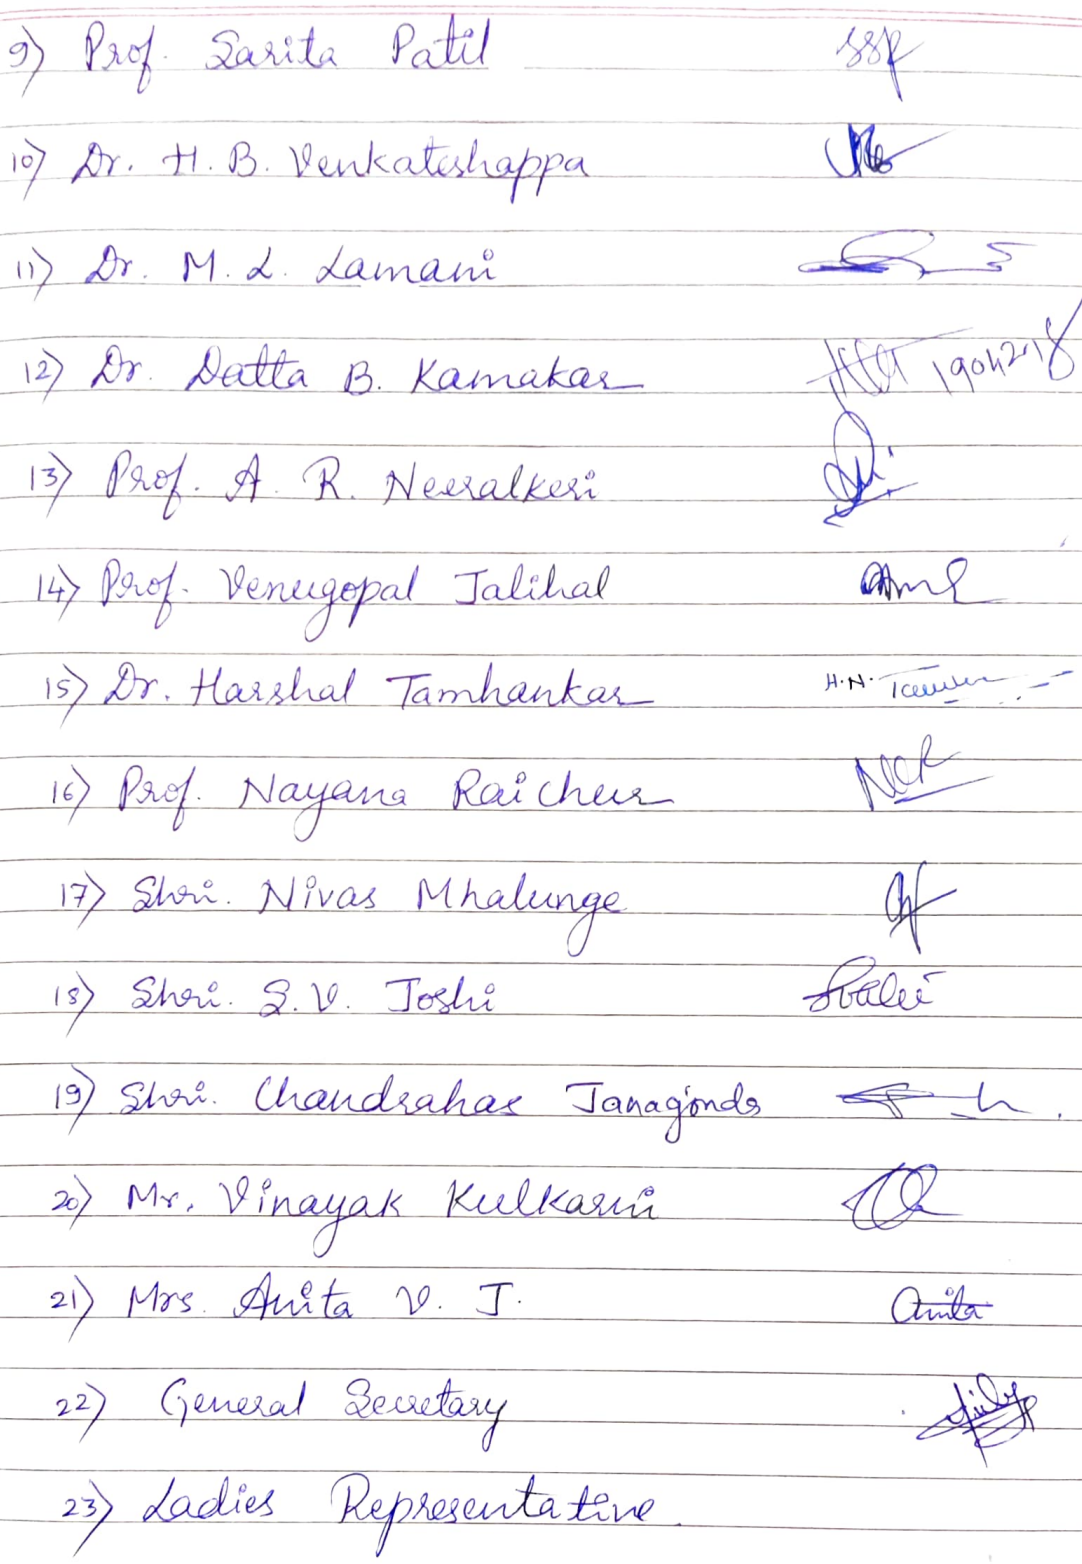 9) Prof. Sarita Patil SSP
10) Dr. H. B. Venkateshappa
11) Dr. M. L. Lamani
12) Dr. Datta B. Kamakar
13) Prof. A. R. Neeralkeri
14) Prof. Venugopal Jalihal
15) Dr. Harshal Tamhankar H.N.
16) Prof. Nayana Raichur
17) Shri. Nivas Mhalunge
18) Shri. S.V. Joshi
19) Shri. Chandrahas Janagonds
20) Mr. Vinayak Kulkarni
21) Mrs. Anita V. J. Anita
22) General Secretary
23) Ladies Representative.